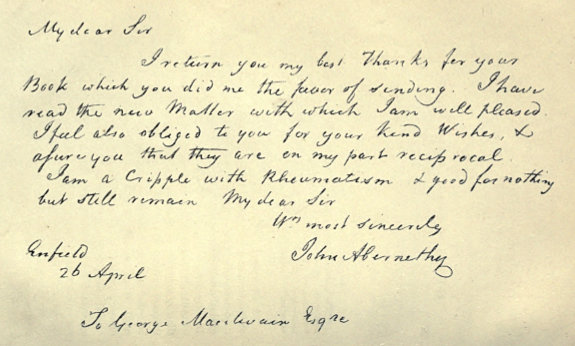 My dear Sir
I return you my best Thanks for your
Book which you did me the favor of sending. I have
read the new Matter with which I am well pleased.
I feel also obliged to you for your Kind Wishes, &
assure you that they are on my part reciprocal.
I am a Cripple with Rheumatism & good for nothing
but still remain My dear Sir
Yrs most sincerely
John Abernethy
Enfield
26 April
To George Macilwain Esqre